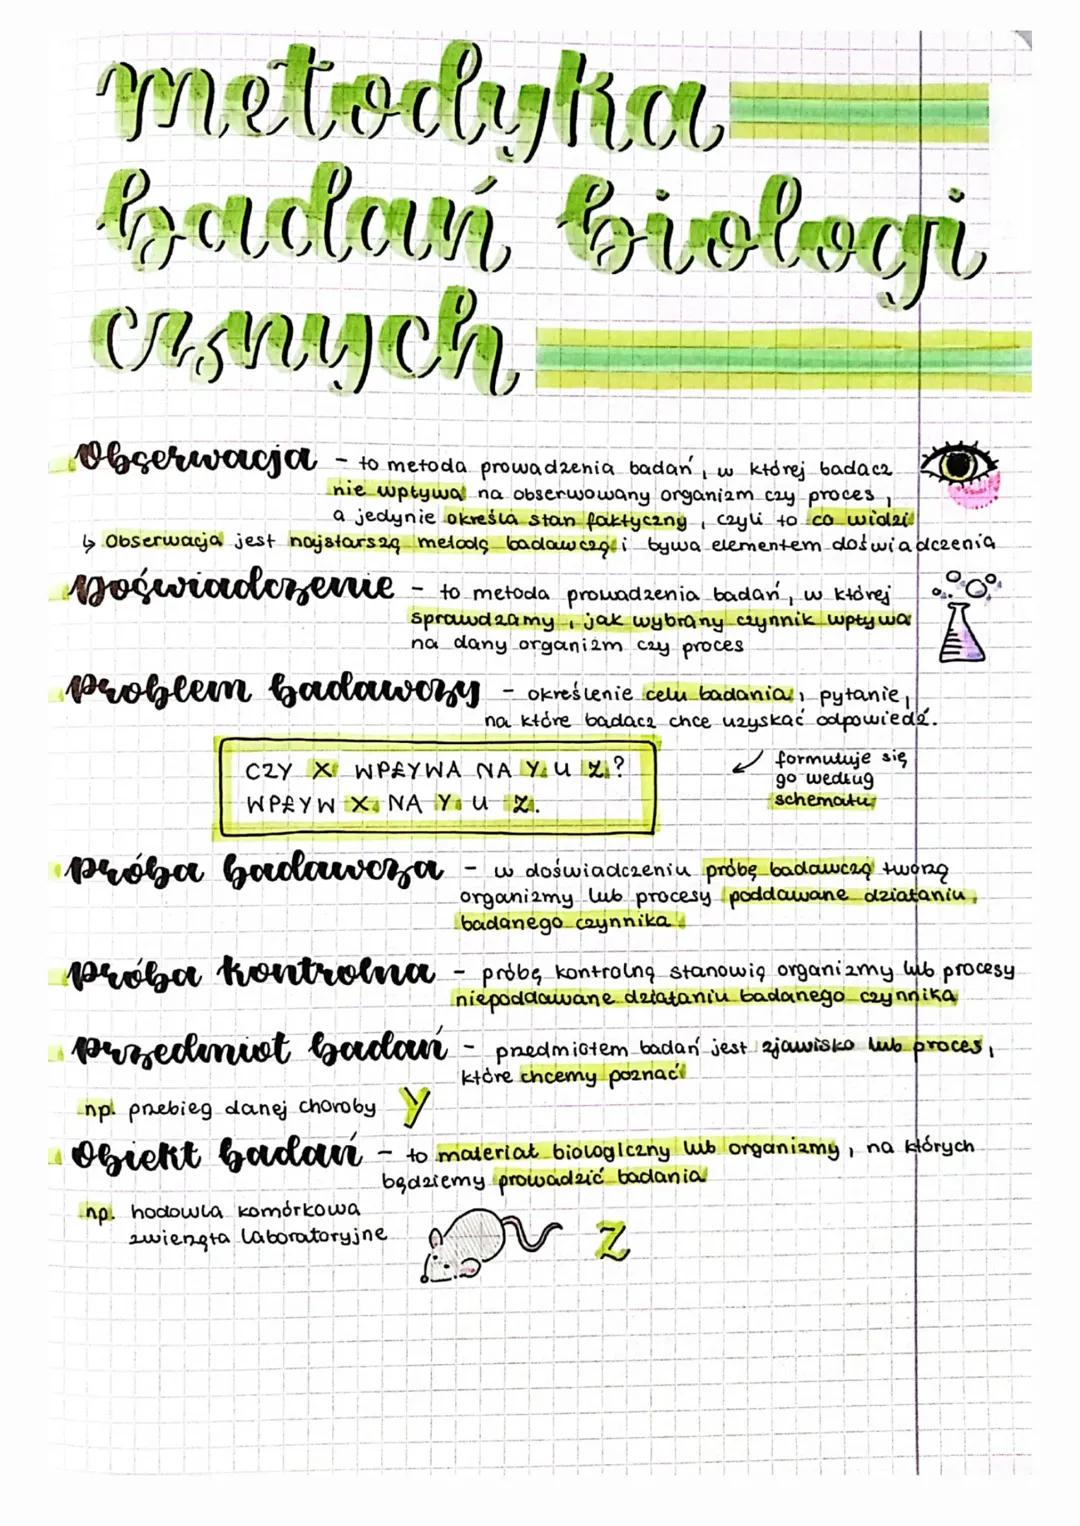 metodyka
badań biologi
cznych
Obserwacja - to metoda prowadzenia badań, w której badacz
nie wpływa na obserwowany organizm czy proces,
a jedynie określa stan faktyczny, czyli to co widzi
↳ Obserwacja jest najstarszą metodą badawczą i bywa elementem doświadczenia
Doświadczenie - to metoda prowadzenia badań, w której
sprawdzamy, jak wybrany czynnik wpływa
na dany organizm czy proces
Problem badawczy - określenie celu badania, pytanie,
na które badacz chce uzyskać odpowiedź.
CZY X WPŁYWA NA Y U Z?
WPŁYW X NA Y U Z.
formułuje się
go według
schematu
Próba badawcza - w doświadczeniu próbę badawczą tworzą
organizmy lub procesy poddawane działaniu
badanego czynnika
Próba kontrolna - próbę kontrolną stanowią organizmy lub procesy
niepoddawane działaniu badanego czynnika
Przedmiot badań - przedmiotem badań jest zjawisko lub proces,
które chcemy poznać
np. przebieg danej choroby Y
Obiekt badań - to materiał biologiczny lub organizmy, na których
będziemy prowadzić badania
np. hodowla komórkowa
zwierzęta laboratoryjne
Z